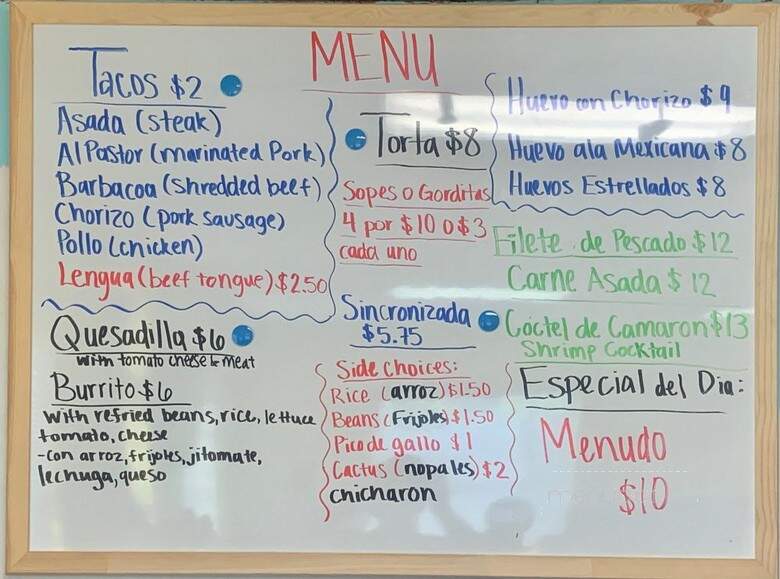 MENU
Tacos $2
Asada (steak)
Al Pastor (marinated Pork)
Barbacoa (shredded beef)
Chorizo (pork sausage)
Pollo (chicken)
Lengua (beef tongue) $2.50
Quesadilla $6
with tomato cheese & meat
Burrito $6
with refried beans, rice, lettuce
tomato, cheese
-con arroz, frijoles, jitomate,
lechuga, queso
Torta $8
Sopes o Gorditas
4 por $10 o $3
cada uno
Sincronizada
$5.75
Side Choices:
Rice (arroz) $1.50
Beans (Frijoles) $1.50
Pico de gallo $1
Cactus (nopales) $2
chicharon
Huevo con Chorizo $9
Huevo ala Mexicana $8
Huevos Estrellados $8
Filete de Pescado $12
Carne Asada $12
Coctel de Camaron $13
Shrimp Cocktail
Especial del Dia:
Menudo
$10